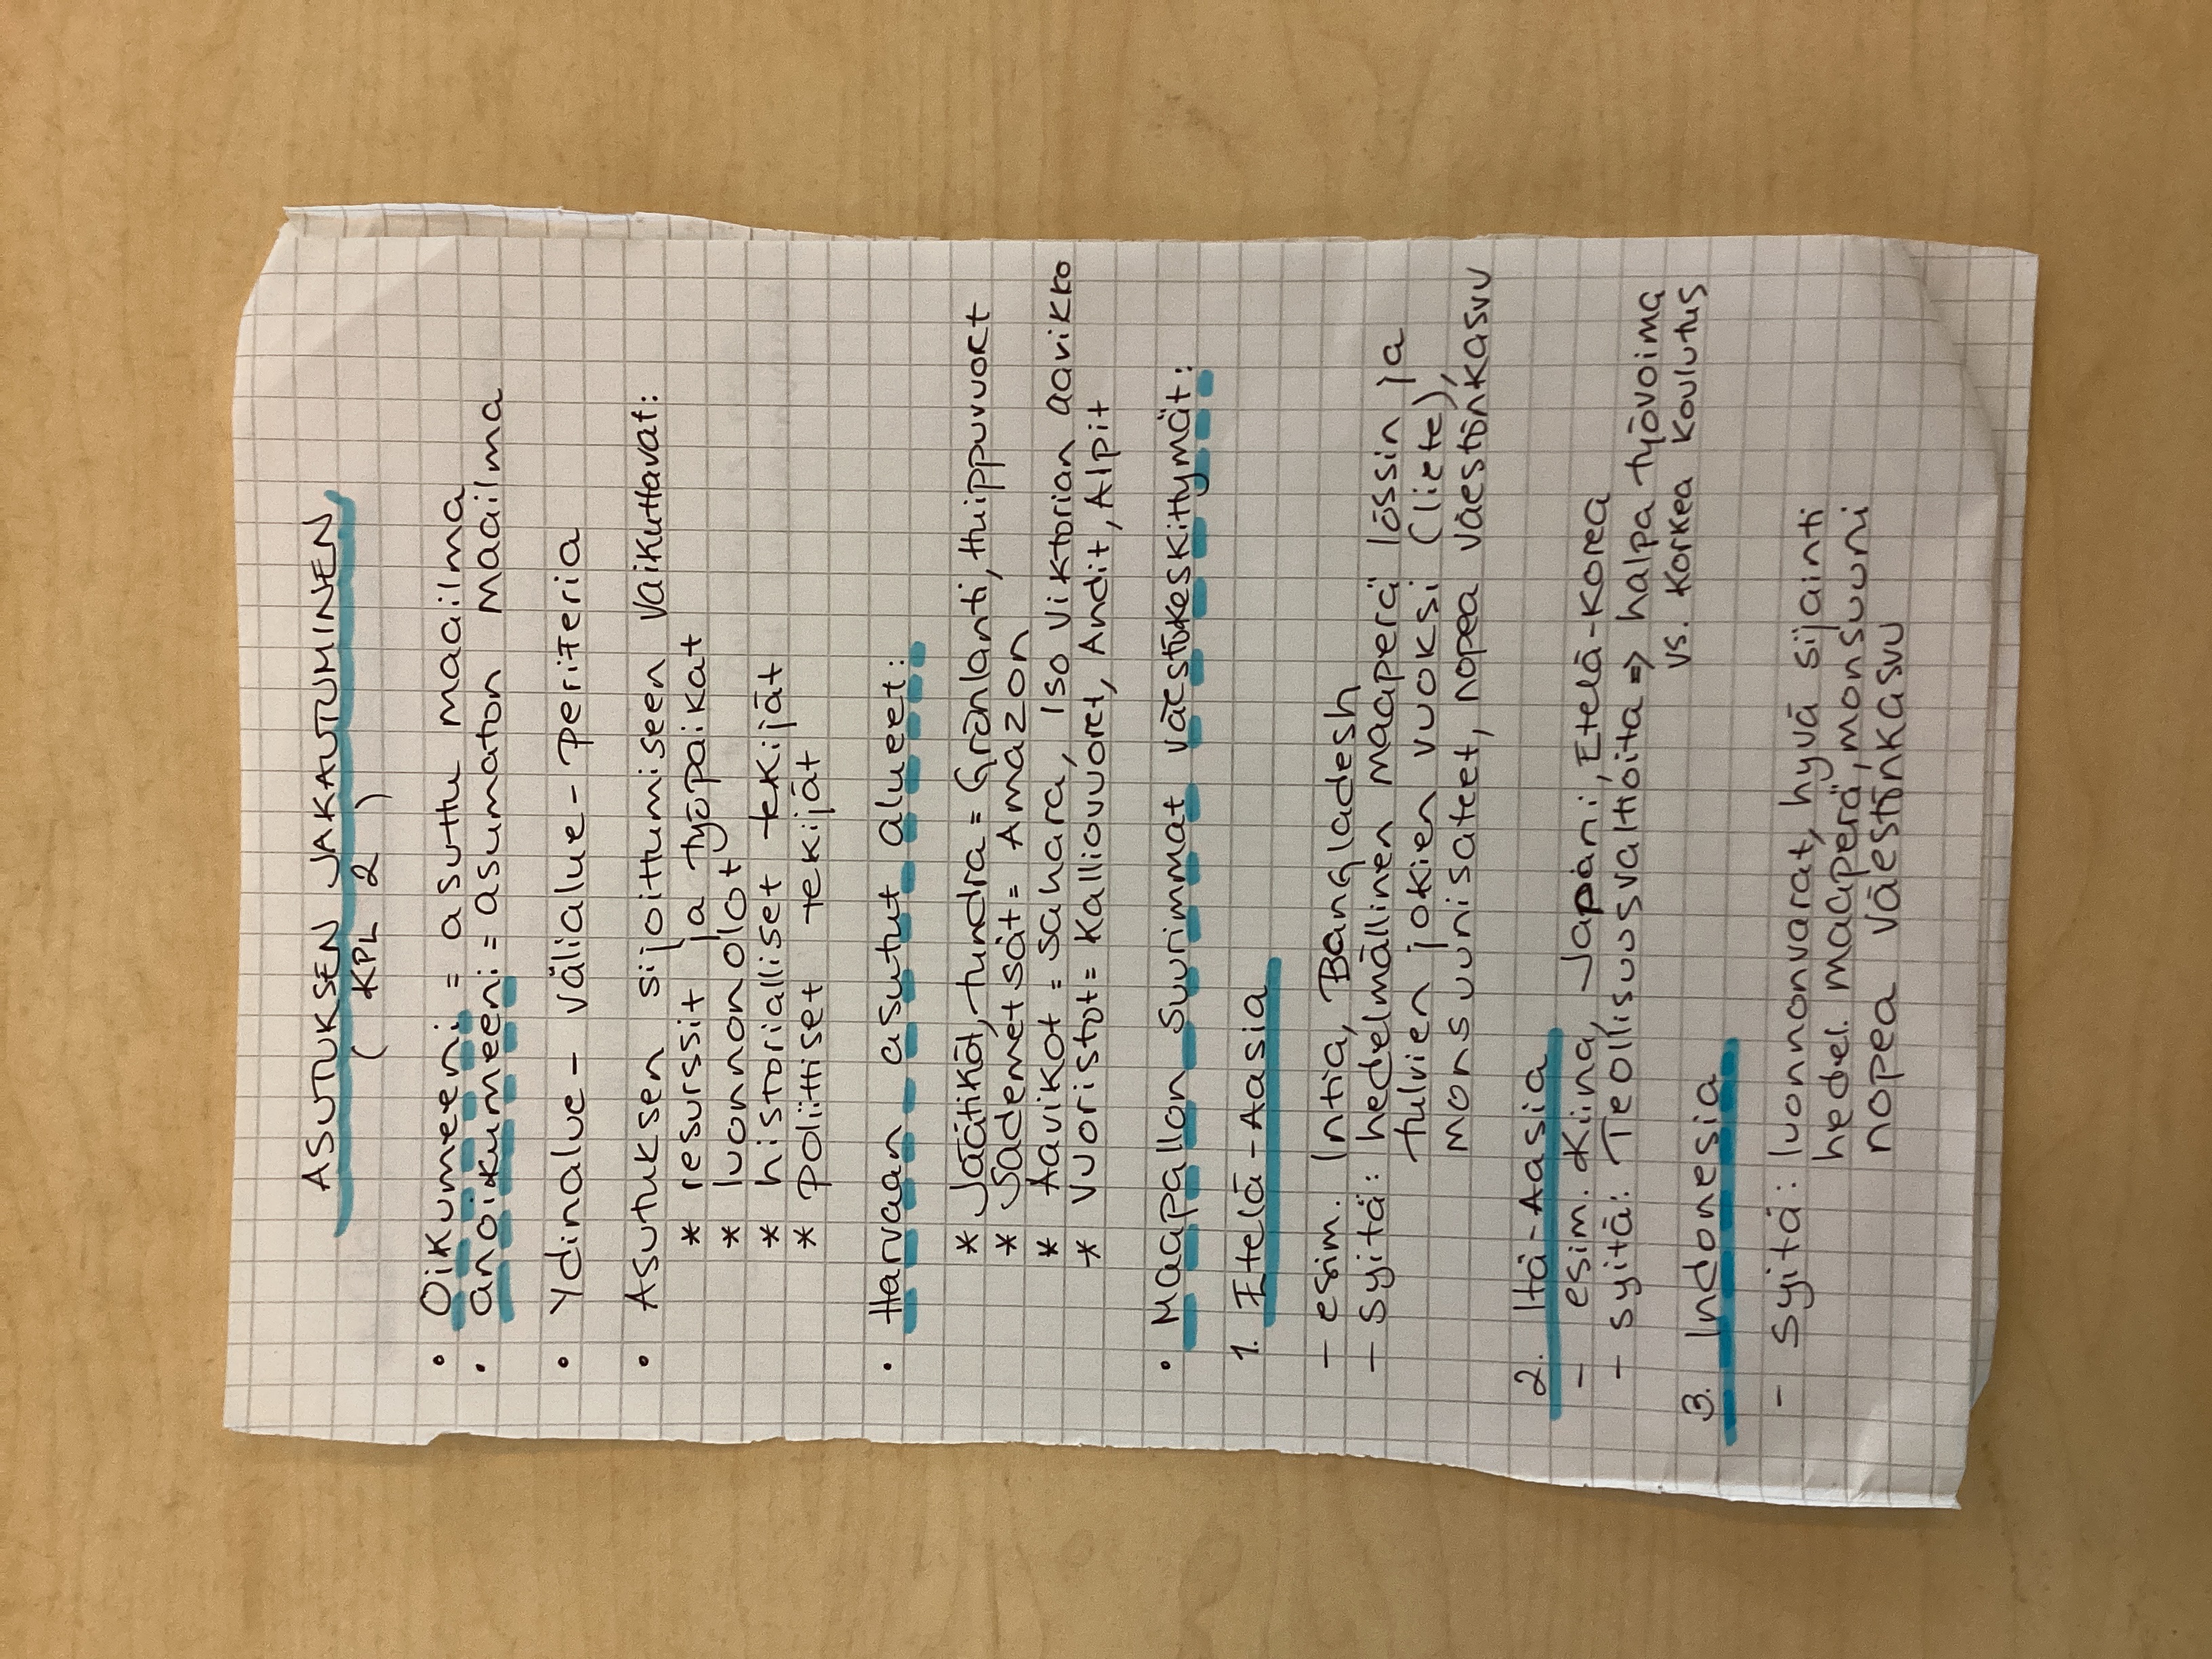 ASUTUKSEN JAKAUTUMINEN
( KPL 2 )
• Oikumeeni: = asuttu maailma
• anoikumeeni = asumaton maailma
• Ydinalue - välialue - periferia
• Asutuksen sijoittumiseen vaikuttavat:
* resurssit ja työpaikat
* luonnonolot
* historialliset tekijät
* poliittiset tekijät
• Harvaan asutut alueet:
* Jäätiköt, tundra = Grönlanti, Huippuvuort
* Sademetsät = Amazon
* Aavikot = Sahara, Iso Viktorian aavikko
* Vuoristot = Kalliovuoret, Andit, Alpit
• Maapallon suurimmat väestökeskittymät:
1. Etelä-Aasia
- esim. Intia, Bangladesh
- syitä: hedelmällinen maaperä lössin ja
tulvien jokien vuoksi (liete),
monsuunisateet, nopea väestönkasvu
2. Itä-Aasia
- esim. Kiina, Japani, Etelä-Korea
- syitä: Teollisuusvaltioita => halpa työvoima
vs. korkea koulutus
3. Indonesia
- syitä: luonnonvarat, hyvä sijainti
hedel. maaperä, monsuuni
nopea väestönkasvu